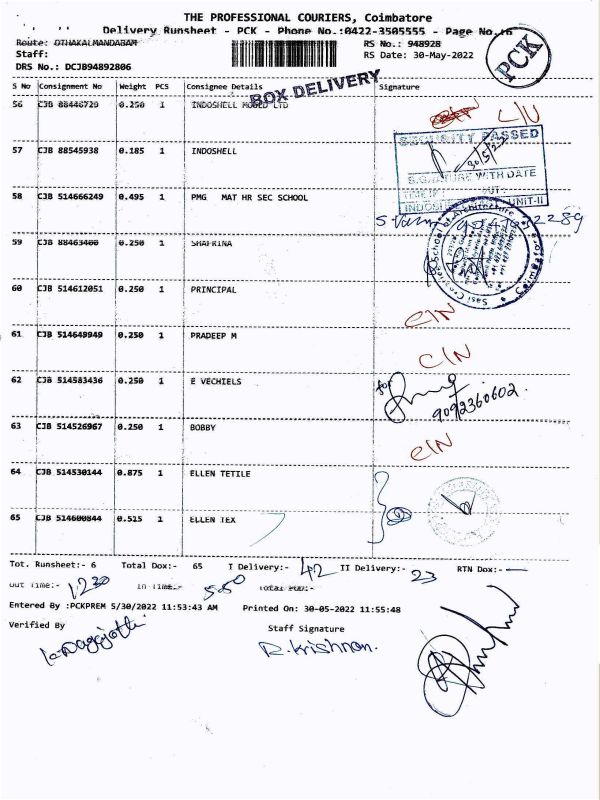 THE PROFESSIONAL COURIERS, Coimbatore
Delivery Runsheet - PCK - Phone No.:0422-3505555 - Page No.:6
Route: OTHAKALMANDABAM RS No.: 948928
Staff: RS Date: 30-May-2022
DRS No.: DCJB94892806
PCK
S No Consignment No Weight PCS Consignee Details Signature
BOX DELIVERY
56 CJB 88446729 0.250 1 INDOSHELL MOULD LTD
C/N
SECURITY PASSED
30/5/22
SIGNATURE WITH DATE
57 CJB 88545938 0.185 1 INDOSHELL
58 CJB 514666249 0.495 1 PMG MAT HR SEC SCHOOL
59 CJB 88463400 0.250 1 SHAFRINA
School of Architecture
60 CJB 514612051 0.250 1 PRINCIPAL
C/N
61 CJB 514649949 0.250 1 PRADEEP M
C/N
62 CJB 514583436 0.250 1 E VECHIELS
for
9092360602.
63 CJB 514526967 0.250 1 BOBBY
C/N
64 CJB 514530144 0.875 1 ELLEN TETILE
65 CJB 514600844 0.515 1 ELLEN TEX
Tot. Runsheet:- 6 Total Dox:- 65 I Delivery:- 42 II Delivery:- 23 RTN Dox:- —
Out Time:- 12.20 In Time:- 5.50 Total POD:-
Entered By :PCKPREM 5/30/2022 11:53:43 AM Printed On: 30-05-2022 11:55:48
Verified By Staff Signature
R. Krishnan.